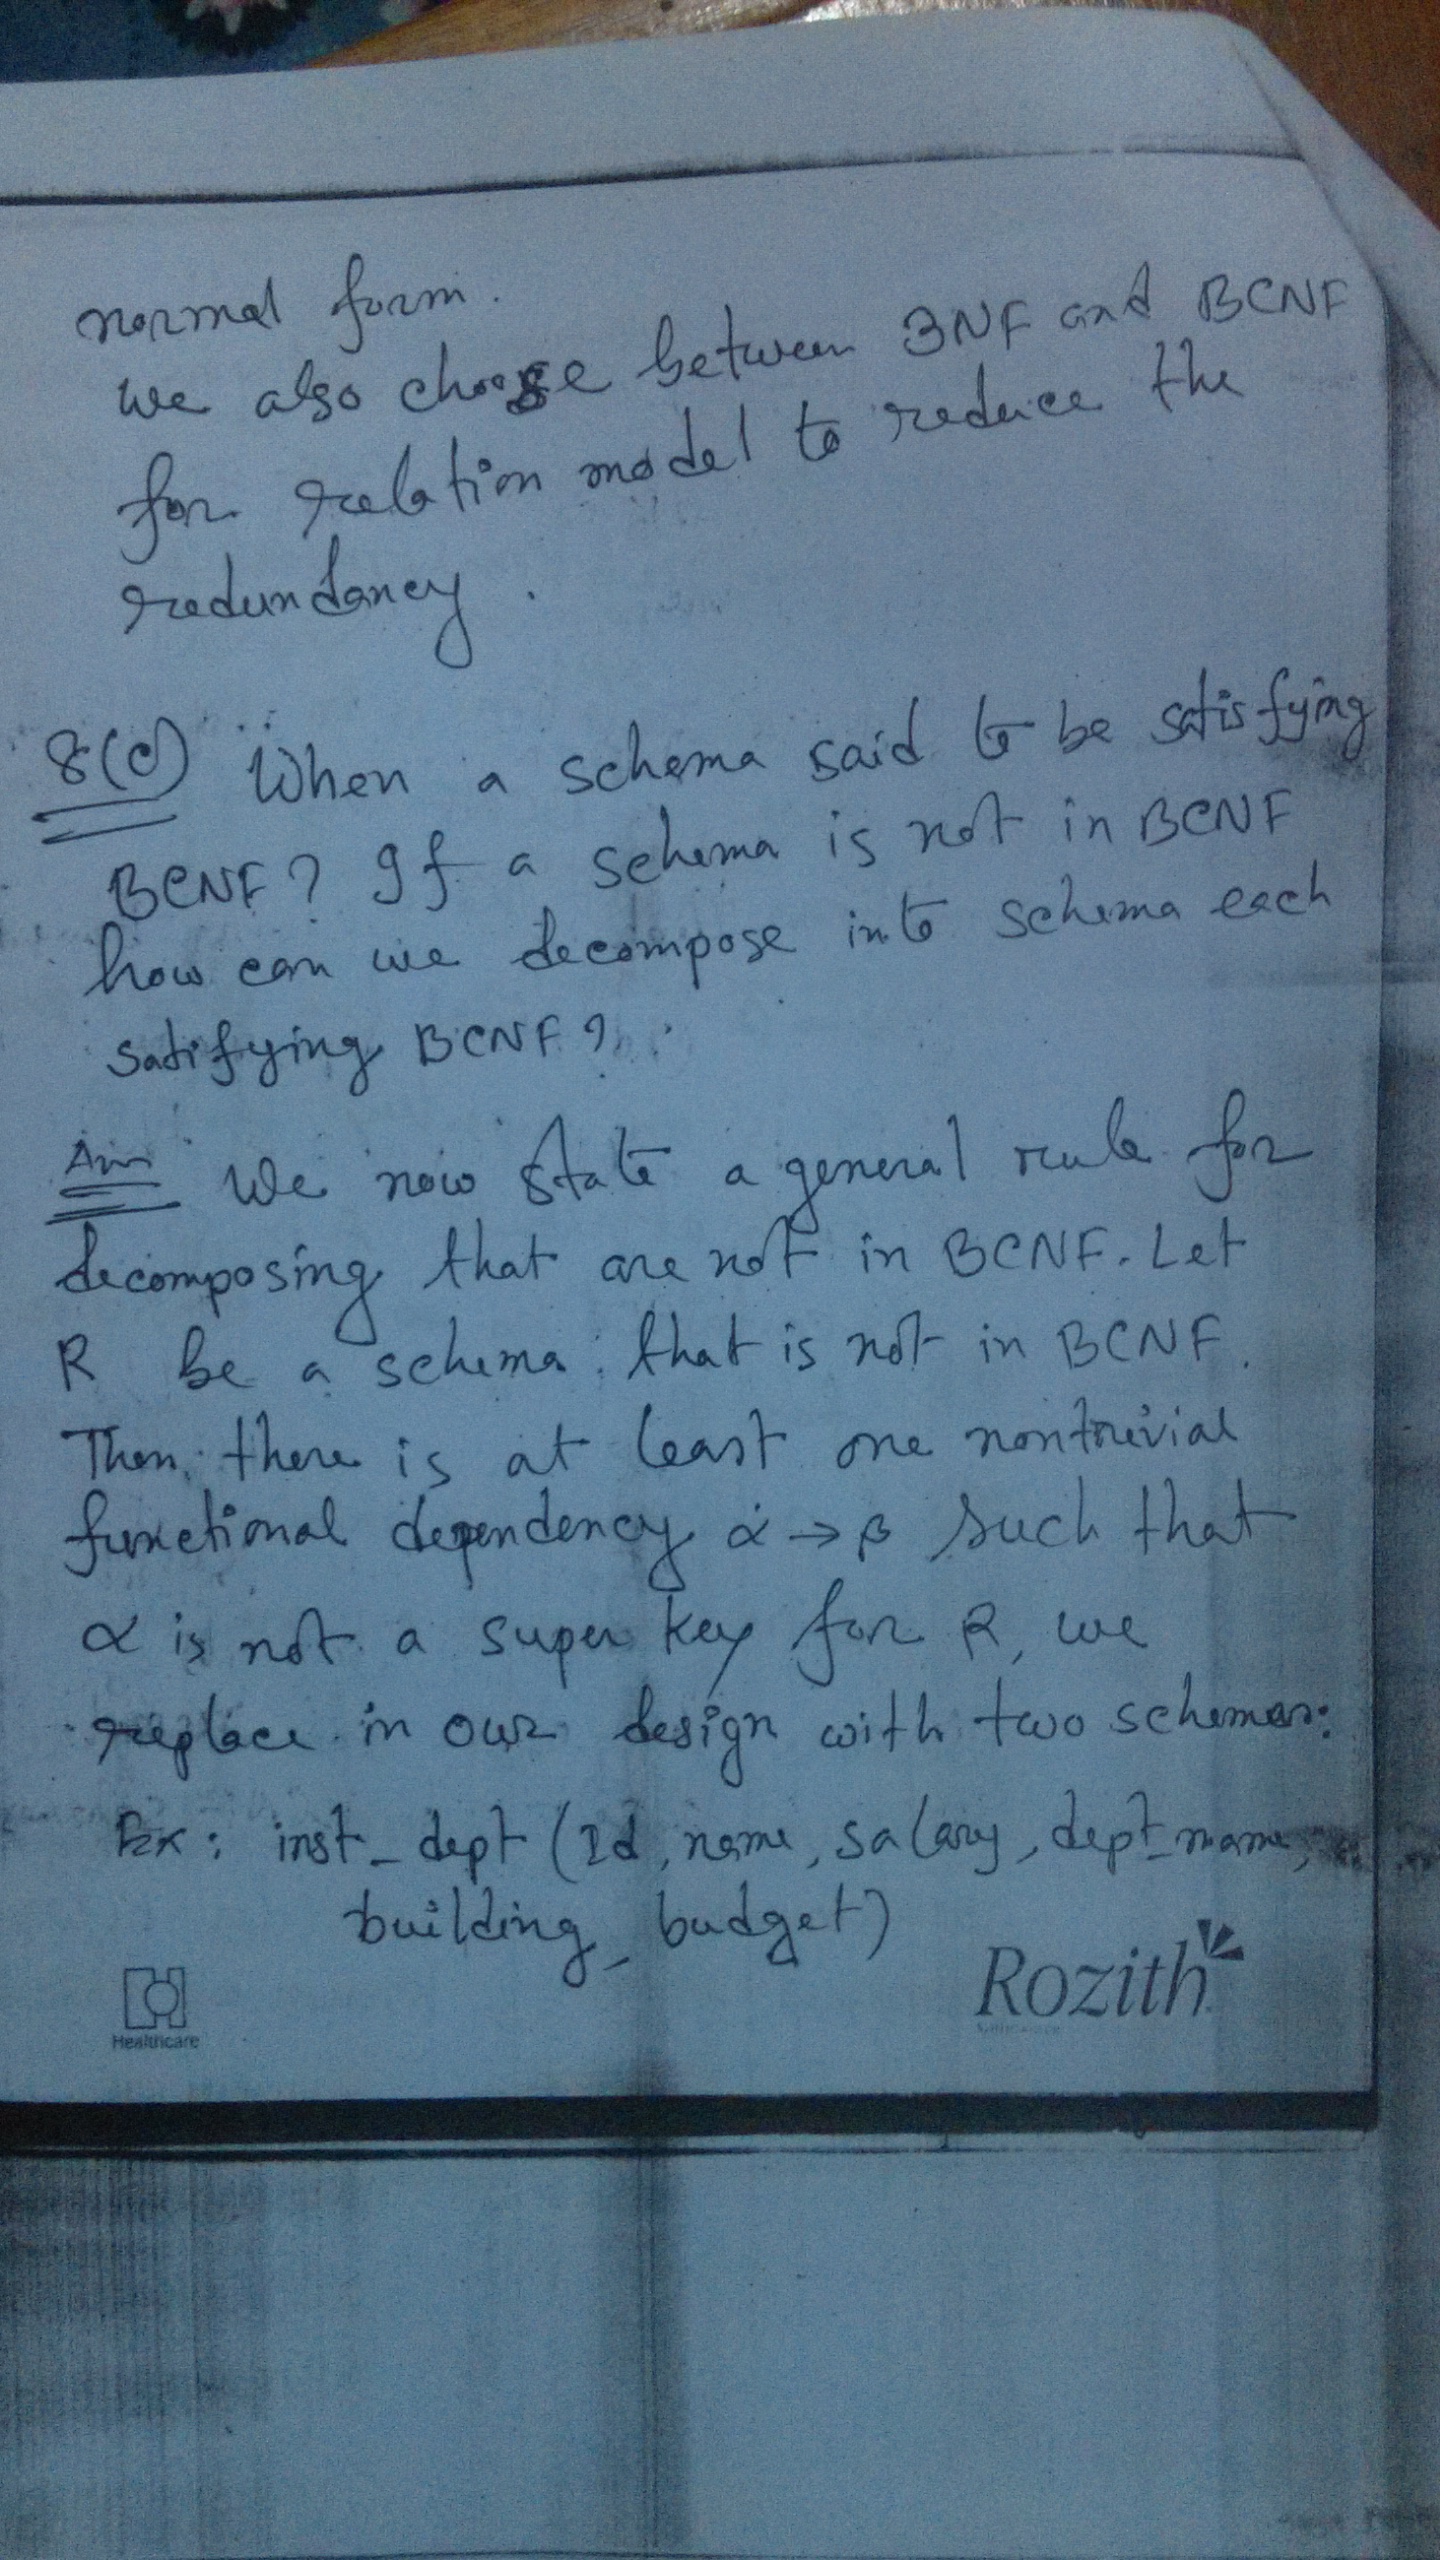 normal form.
we also choose between 3NF and BCNF
for relation model to reduce the
redundancy.
8(c) When a schema said to be satisfying
BCNF? If a schema is not in BCNF
how can we decompose into schema each
satifying BCNF?
Ans We now state a general rule for
decomposing that are not in BCNF. Let
R be a schema that is not in BCNF.
Then there is at least one nontrivial
functional dependency α → β such that
α is not a super key for R, we
replace in our design with two schemas:
Ex: inst_dept (Id, name, salary, dept_name,
building, budget)
Healthcare
Rozith